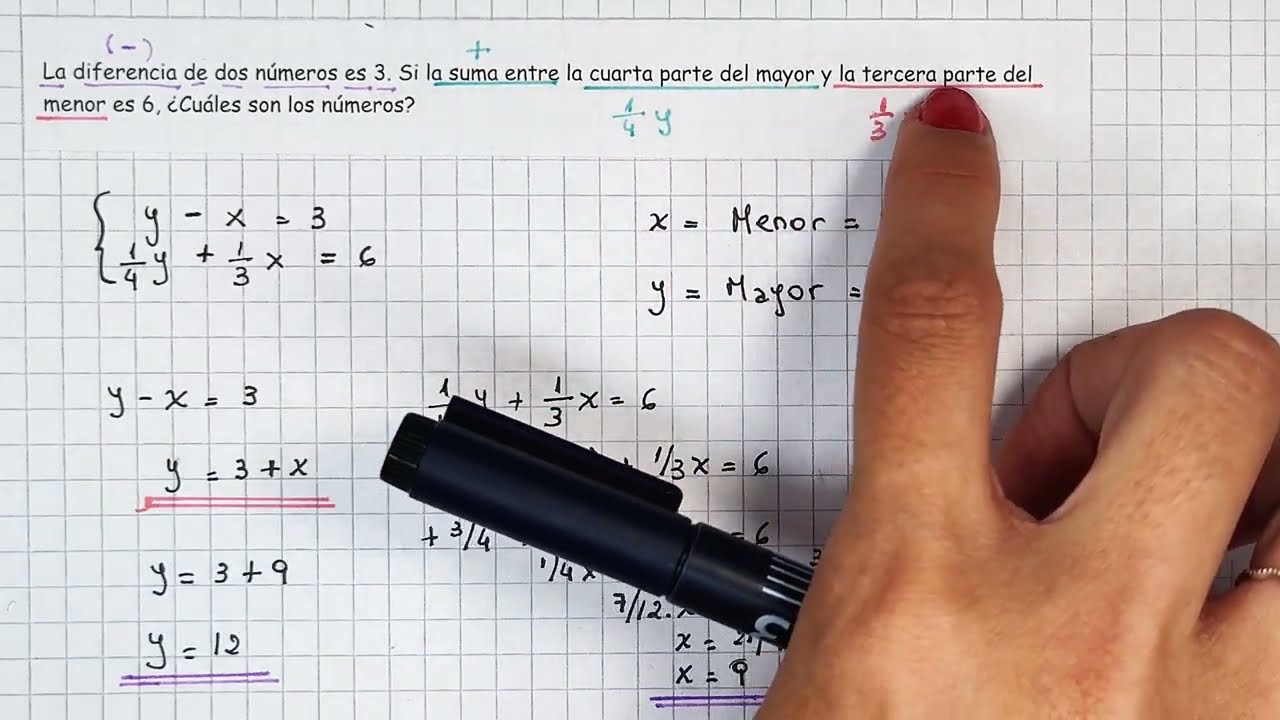 (-)
+
La diferencia de dos números es 3. Si la suma entre la cuarta parte del mayor y la tercera parte del
menor es 6, ¿Cuáles son los números?
1/4 y
1/3
y - x = 3
1/4 y + 1/3 x = 6
x = Menor =
y = Mayor =
y - x = 3
y + 1/3 x = 6
y = 3 + x
1/3 x = 6
+ 3/4
= 6
y = 3 + 9
1/4 x
7/12.
y = 12
x =
x = 9